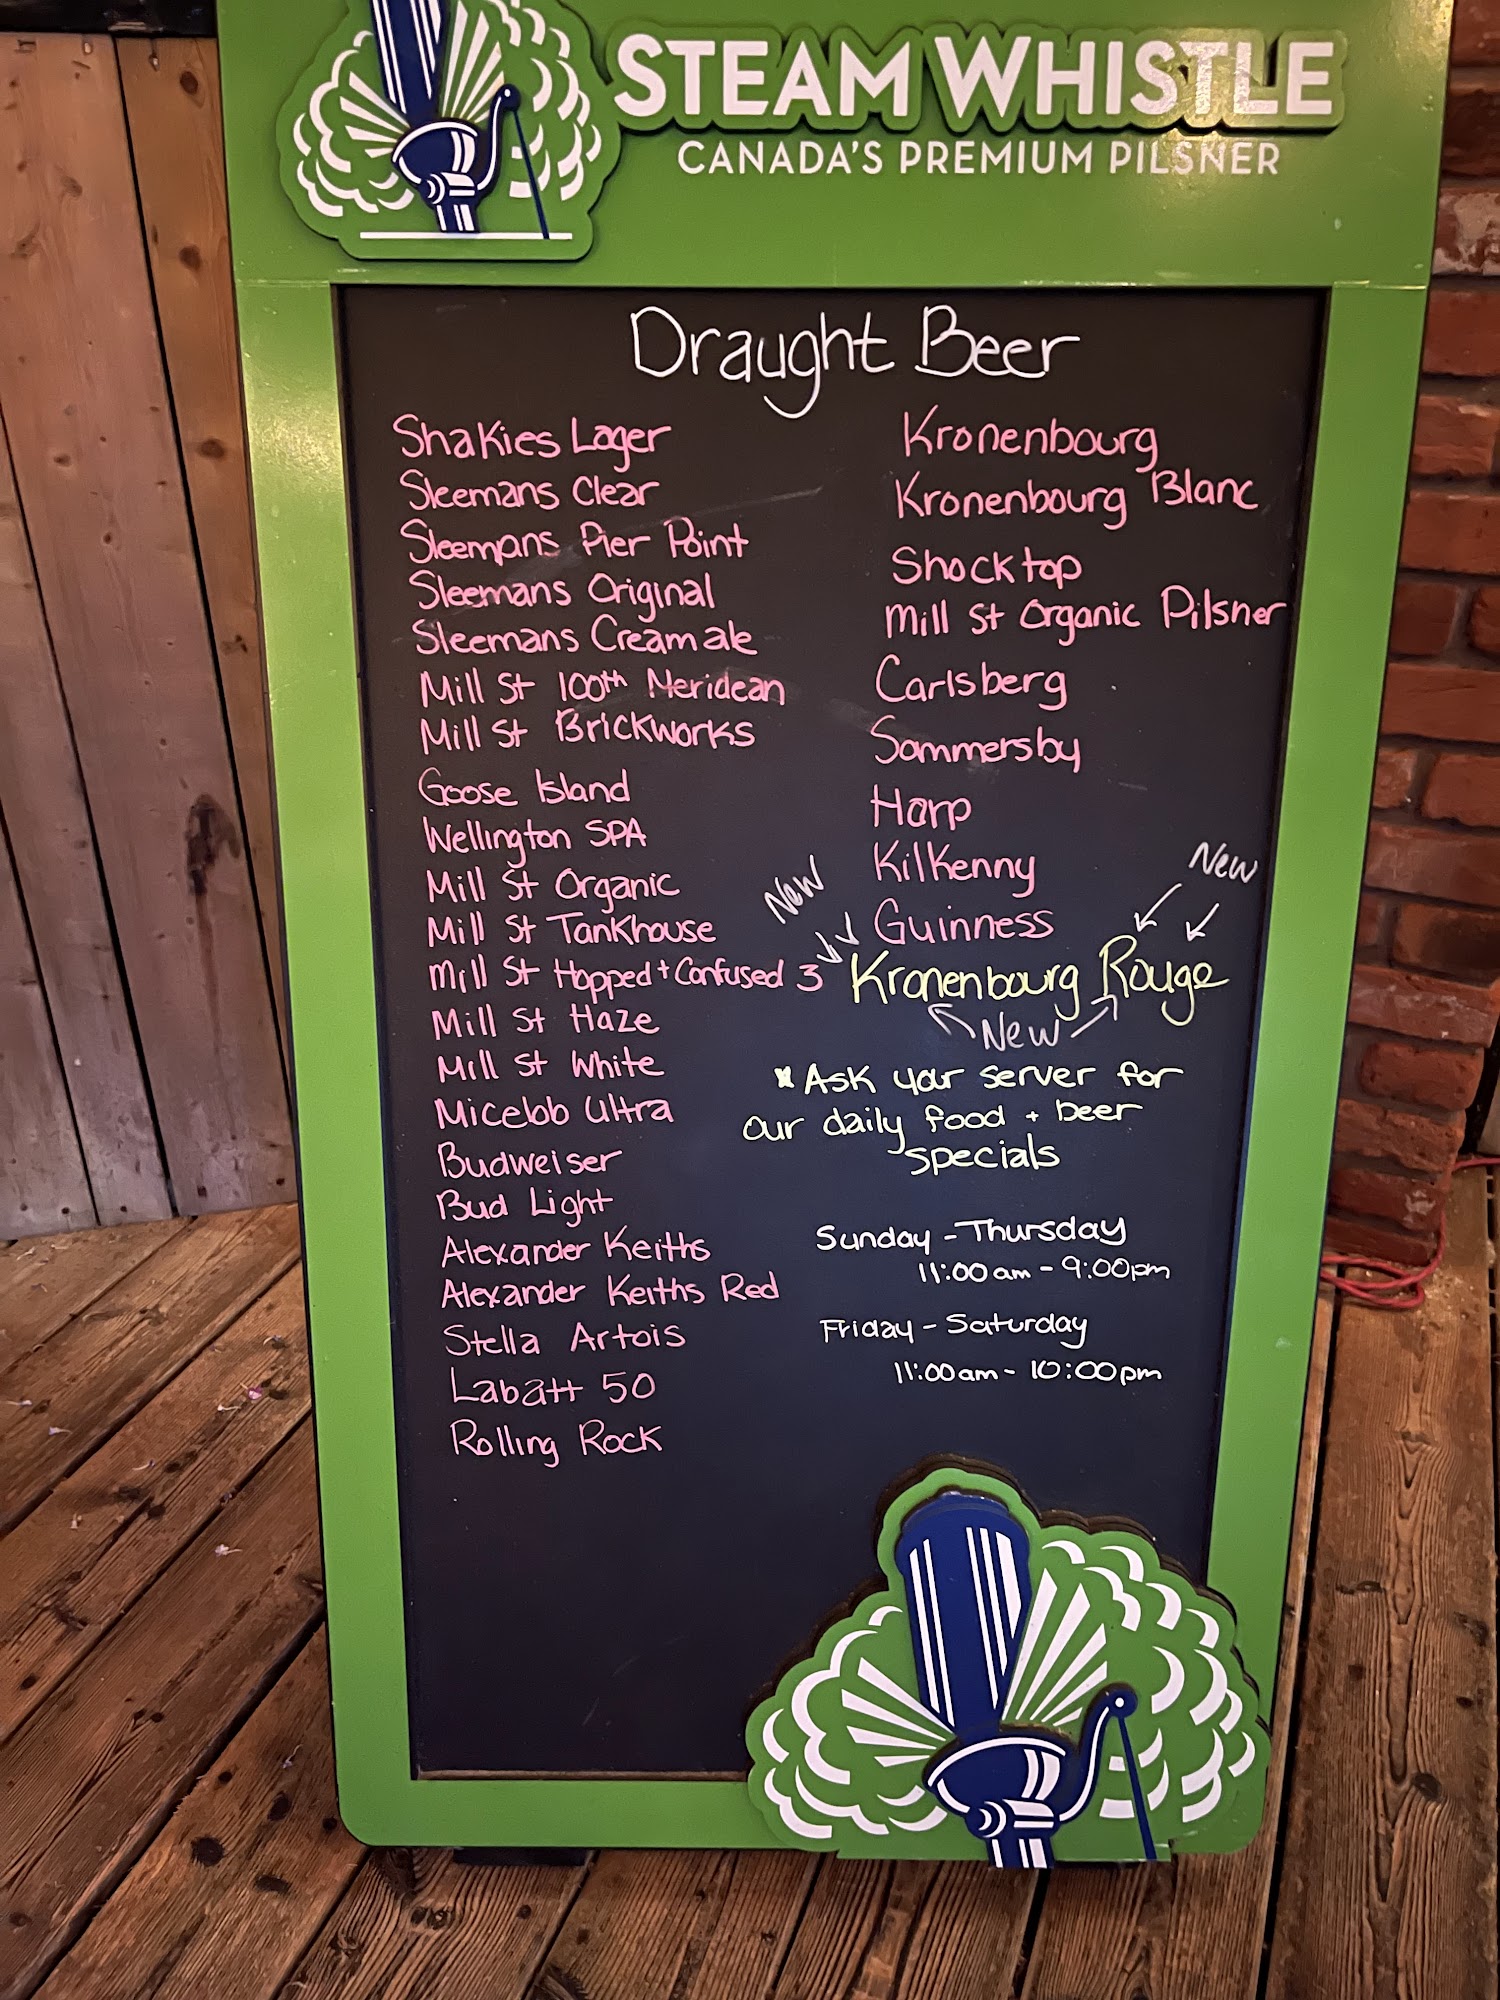 STEAM WHISTLE
CANADA'S PREMIUM PILSNER
Draught Beer
Shakies Lager
Sleemans Clear
Sleemans Pier Point
Sleemans Original
Sleemans Cream ale
Mill St 100th Meridean
Mill St Brickworks
Goose Island
Wellington SPA
Mill St Organic
Mill St Tankhouse
Mill St Hopped + Confused 3
Mill St Haze
Mill St White
Micelob Ultra
Budweiser
Bud Light
Alexander Keiths
Alexander Keiths Red
Stella Artois
Labatt 50
Rolling Rock
Kronenbourg
Kronenbourg Blanc
Shocktop
Mill St Organic Pilsner
Carlsberg
Sommersby
Harp
Kilkenny
Guinness
New
New
Kronenbourg Rouge
New
*Ask your server for
our daily food + beer
specials
Sunday - Thursday
11:00am - 9:00pm
Friday - Saturday
11:00am - 10:00pm